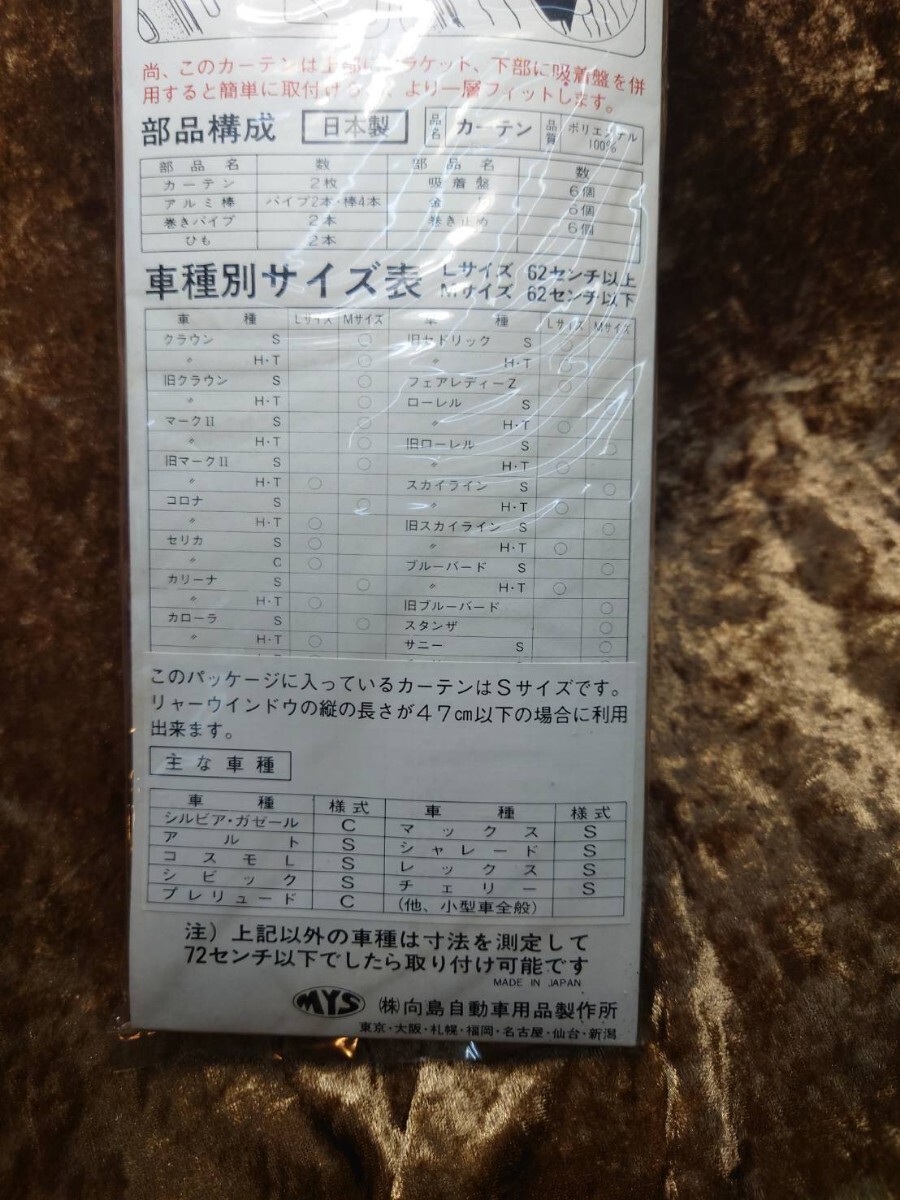 尚、このカーテンは上部にブラケット、下部に吸着盤を併
用すると簡単に取付けら、より一層フィットします。
部品構成 日本製 品名 カーテン 品質 ポリエステル 100%
部品名 数 部品名 数
カーテン 2枚 吸着盤 6個
アルミ棒 パイプ2本・棒4本 金 6個
巻きパイプ 2本 巻き止め 6個
ひも 2本
車種別サイズ表 Lサイズ 62センチ以上
Mサイズ 62センチ以下
車種 Lサイズ Mサイズ 車種 Lサイズ Mサイズ
クラウン S ○ 旧セドリック S ○
〃 H・T ○ 〃 H・T ○
旧クラウン S ○ フェアレディーZ ○
〃 H・T ○ ローレル S
マークII S ○ 〃 H・T ○
〃 H・T ○ 旧ローレル S ○
旧マークII S ○ 〃 H・T ○
〃 H・T ○ スカイライン S ○
コロナ S ○ 〃 H・T ○
〃 H・T ○ 旧スカイライン S ○
セリカ S ○ 〃 H・T ○
〃 C ○ ブルーバード S ○
カリーナ S ○ 〃 H・T ○
〃 H・T ○ 旧ブルーバード ○
カローラ S ○ スタンザ ○
〃 H・T ○ サニー S ○
このパッケージに入っているカーテンはSサイズです。
リャーウインドウの縦の長さが47cm以下の場合に利用
出来ます。
主な車種
車種 様式 車種 様式
シルビア・ガゼール C マックス S
アルト S シャレード S
コスモL S レックス S
シビック S チェリー S
プレリュード C (他、小型車全般)
注)上記以外の車種は寸法を測定して
72センチ以下でしたら取り付け可能です
MADE IN JAPAN
MYS ㈱向島自動車用品製作所
東京・大阪・札幌・福岡・名古屋・仙台・新潟